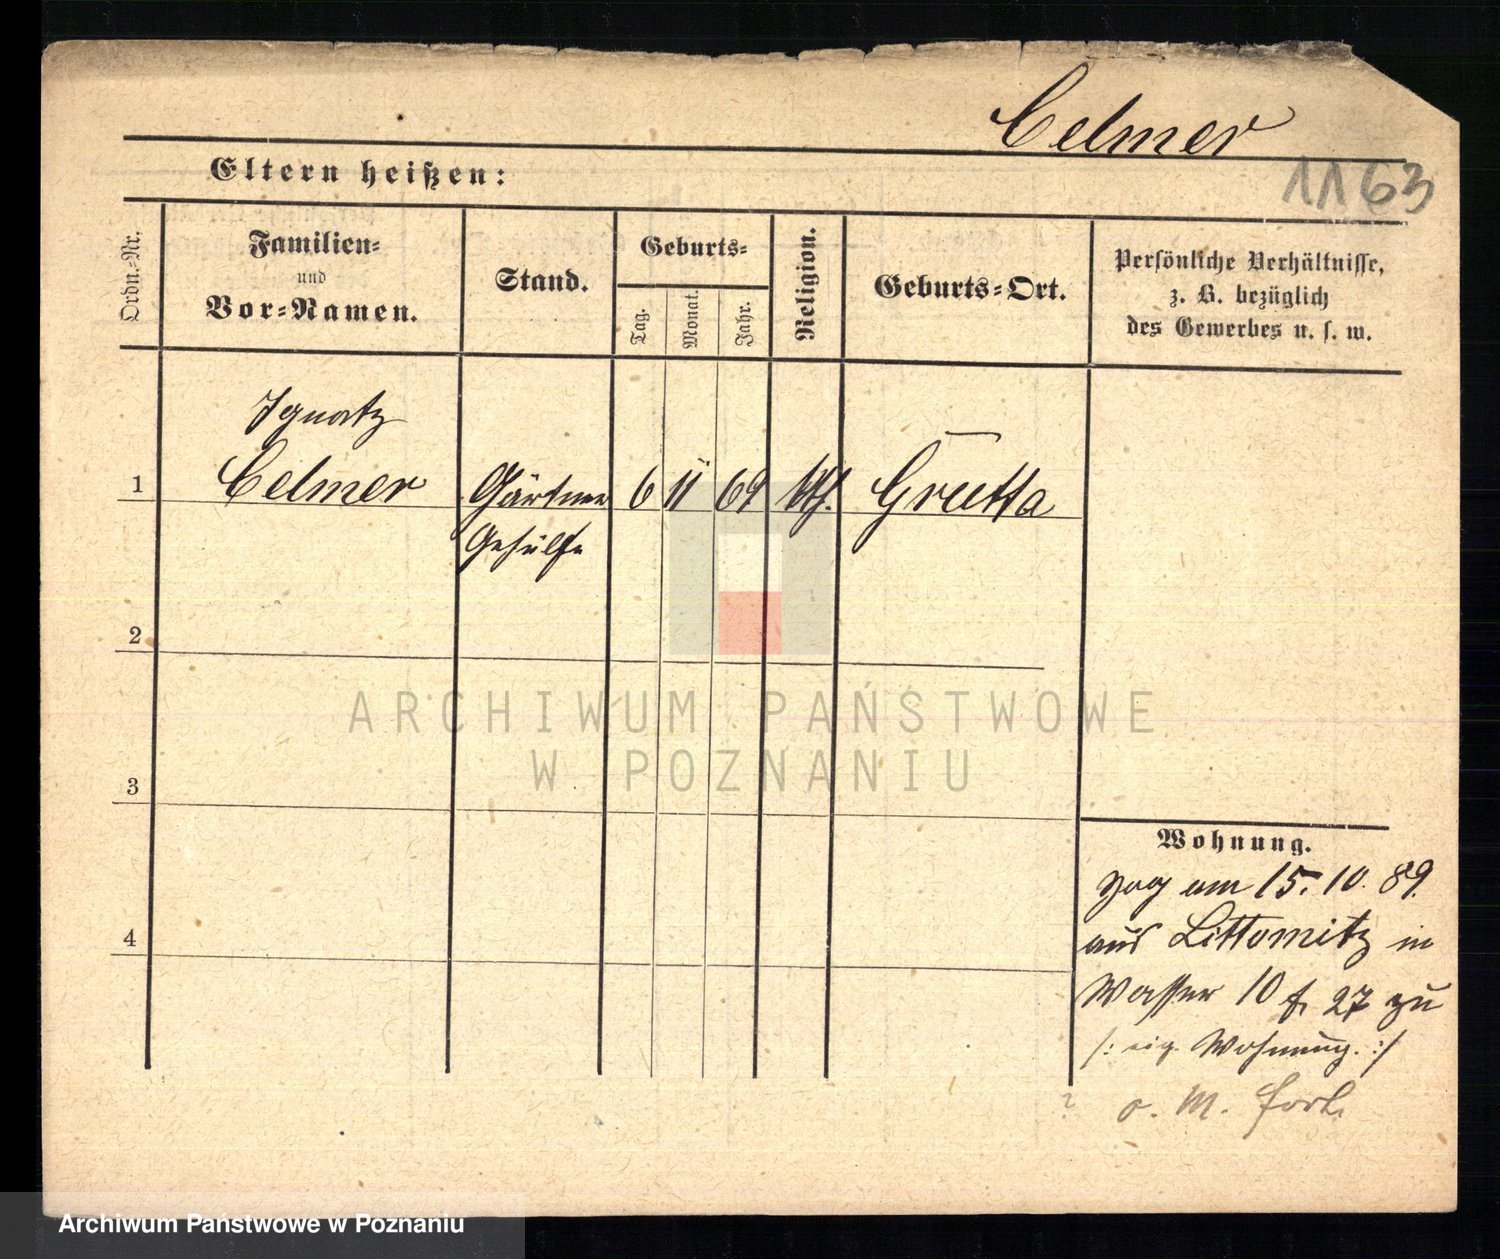 Celmer
1163
Eltern heißen:
Ordn.-Nr.
Familien-
und
Vor-Namen.
Stand.
Geburts-
Tag.
Monat.
Jahr.
Religion.
Geburts-Ort.
Persönliche Verhältnisse,
z. B. bezüglich
des Gewerbes u. s. w.
Ignatz
1 Celmer Gärtner 6 11 69 kth. Gruetta
Gehülfe
2
3
4
Wohnung.
zog am 15. 10. 89.
aus Littomitz in
Wasser 10 f. 27 zu
/: eig. Wohnung. :/
o. M. fort.
ARCHIWUM PAŃSTWOWE
W POZNANIU
Archiwum Państwowe w Poznaniu